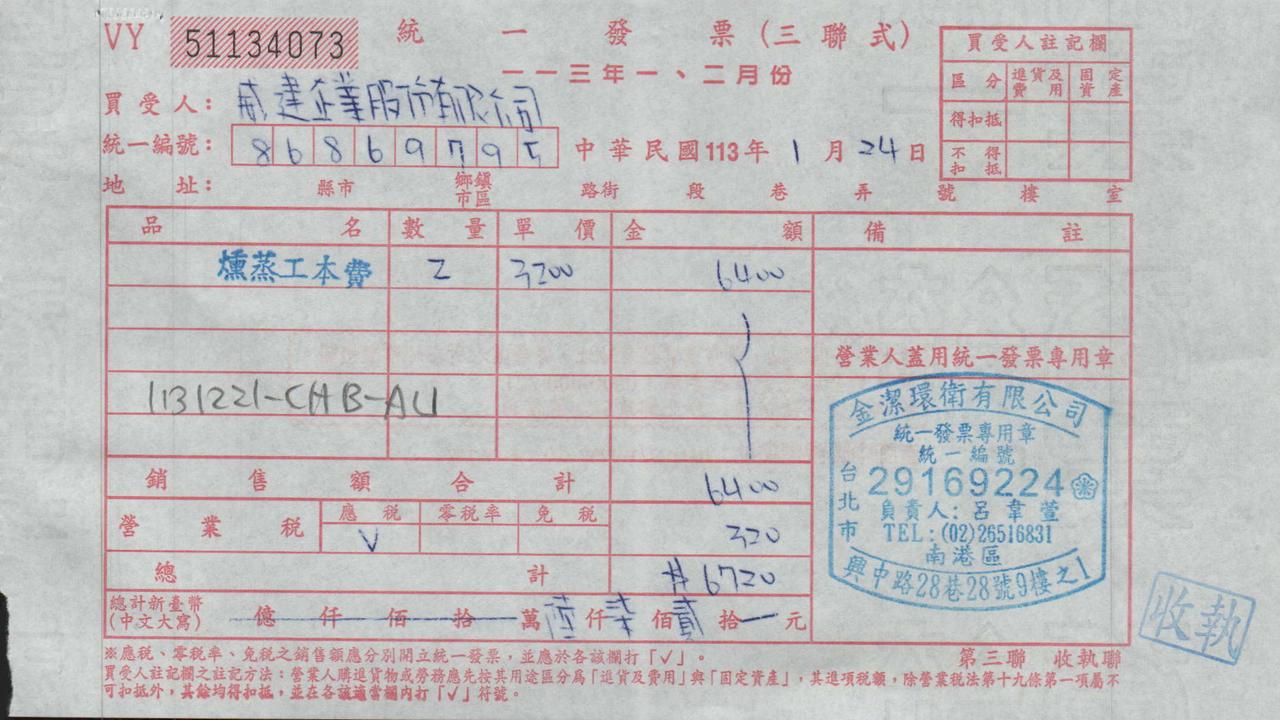 VY 51134073 統一發票(三聯式)
一一三年一、二月份
買受人註記欄
區分 進貨及費用 固定資產
得扣抵
不得扣抵
買受人: 威建企業股份有限公司
統一編號: 86869795 中華民國113年1月24日
地址: 縣市 鄉鎮市區 路街 段 巷 弄 號 樓 室
品名 數量 單價 金額 備註
燻蒸工本費 2 3200 6400
營業人蓋用統一發票專用章
1131221-CHB-AU
銷售額合計 6400
營業稅 應稅 零稅率 免稅 320
V
總計 #6720
總計新臺幣(中文大寫) 億仟佰拾萬陸仟柒佰貳拾元
金潔環衛有限公司
統一發票專用章
統一編號
台北市 29169224
負責人:呂韋萱
TEL:(02)26516831
南港區
興中路28巷28號9樓之1
收執
※應稅、零稅率、免稅之銷售額應分別開立統一發票,並應於各該欄打「✓」。
第三聯 收執聯
買受人註記欄之註記方法:營業人購進貨物或勞務應先按其用途區分為「進貨及費用」與「固定資產」,其進項稅額,除營業稅法第十九條第一項屬不
可扣抵外,其餘均得扣抵,並在各該適當欄內打「✓」符號。